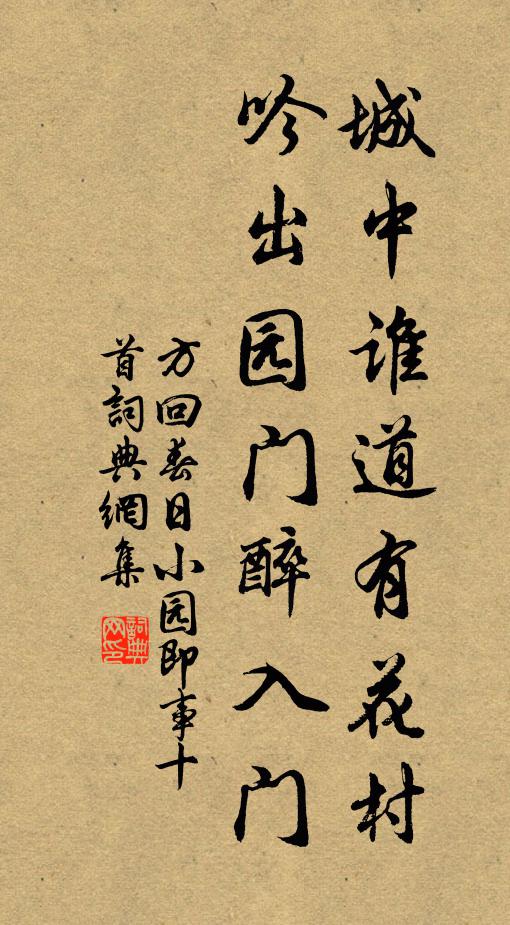 城中谁道有花村
吟出园门醉入门
方回春日小园即事十
首詞典網集
詞典网印